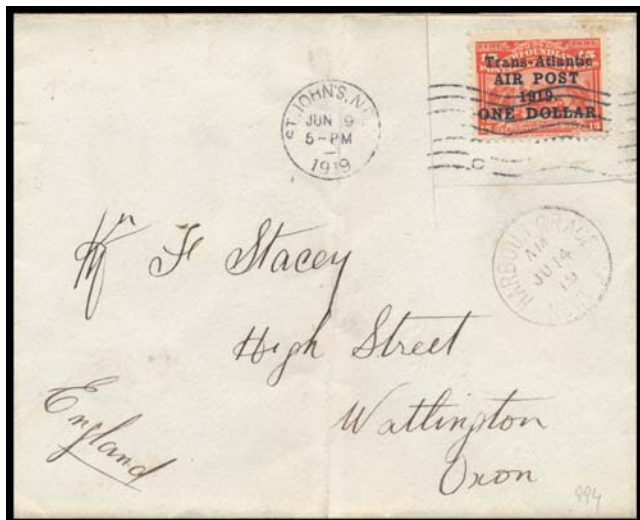 NEWFOUNDLAND
15 15
Trans-Atlantic
AIR POST
1919.
ONE DOLLAR.
ST. JOHN'S, N
JUN 9
5-PM
1919
HARBOUR GRACE
AM
JU 14
19
F Stacey
High Street
Watlington
Oxon
England
994